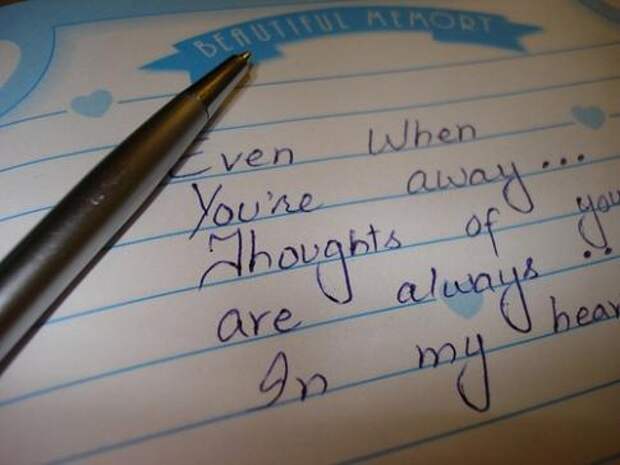 BEAUTIFUL MEMORY
Even When
You're away...
Thoughts of you
are always..
In my hear